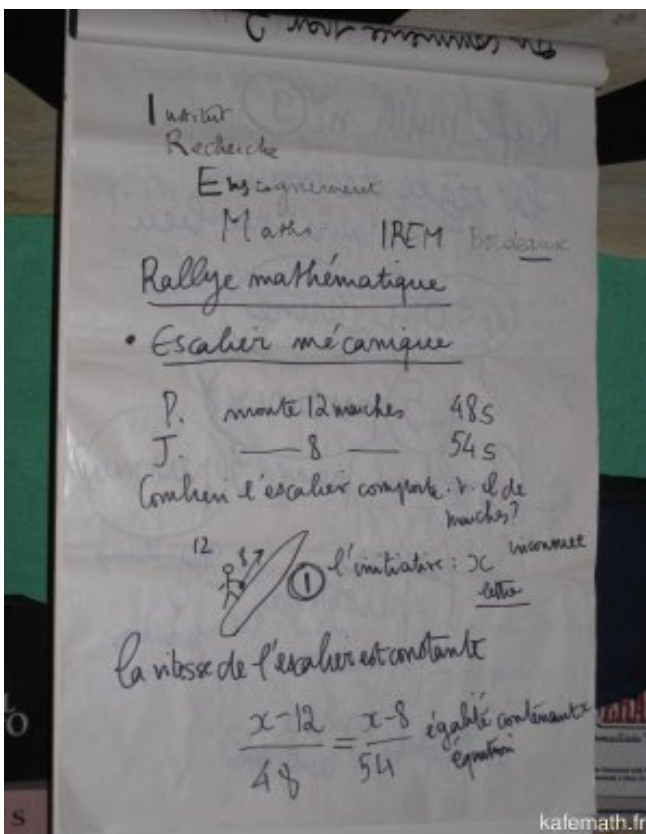 On commence par ?
Institut
Recherche
Enseignement
Maths IREM Bordeaux
Rallye mathématique
• Escalier mécanique
P. monte 12 marches 48s
J. — 8 — 54s
Combien l'escalier comporte-t-il de
marches?
12 8
① l'initiative : x inconnue
lettre
la vitesse de l'escalier est constante
x-12 / 48 = x-8 / 54 égalité contenant x
équation
S
kafemath.fr